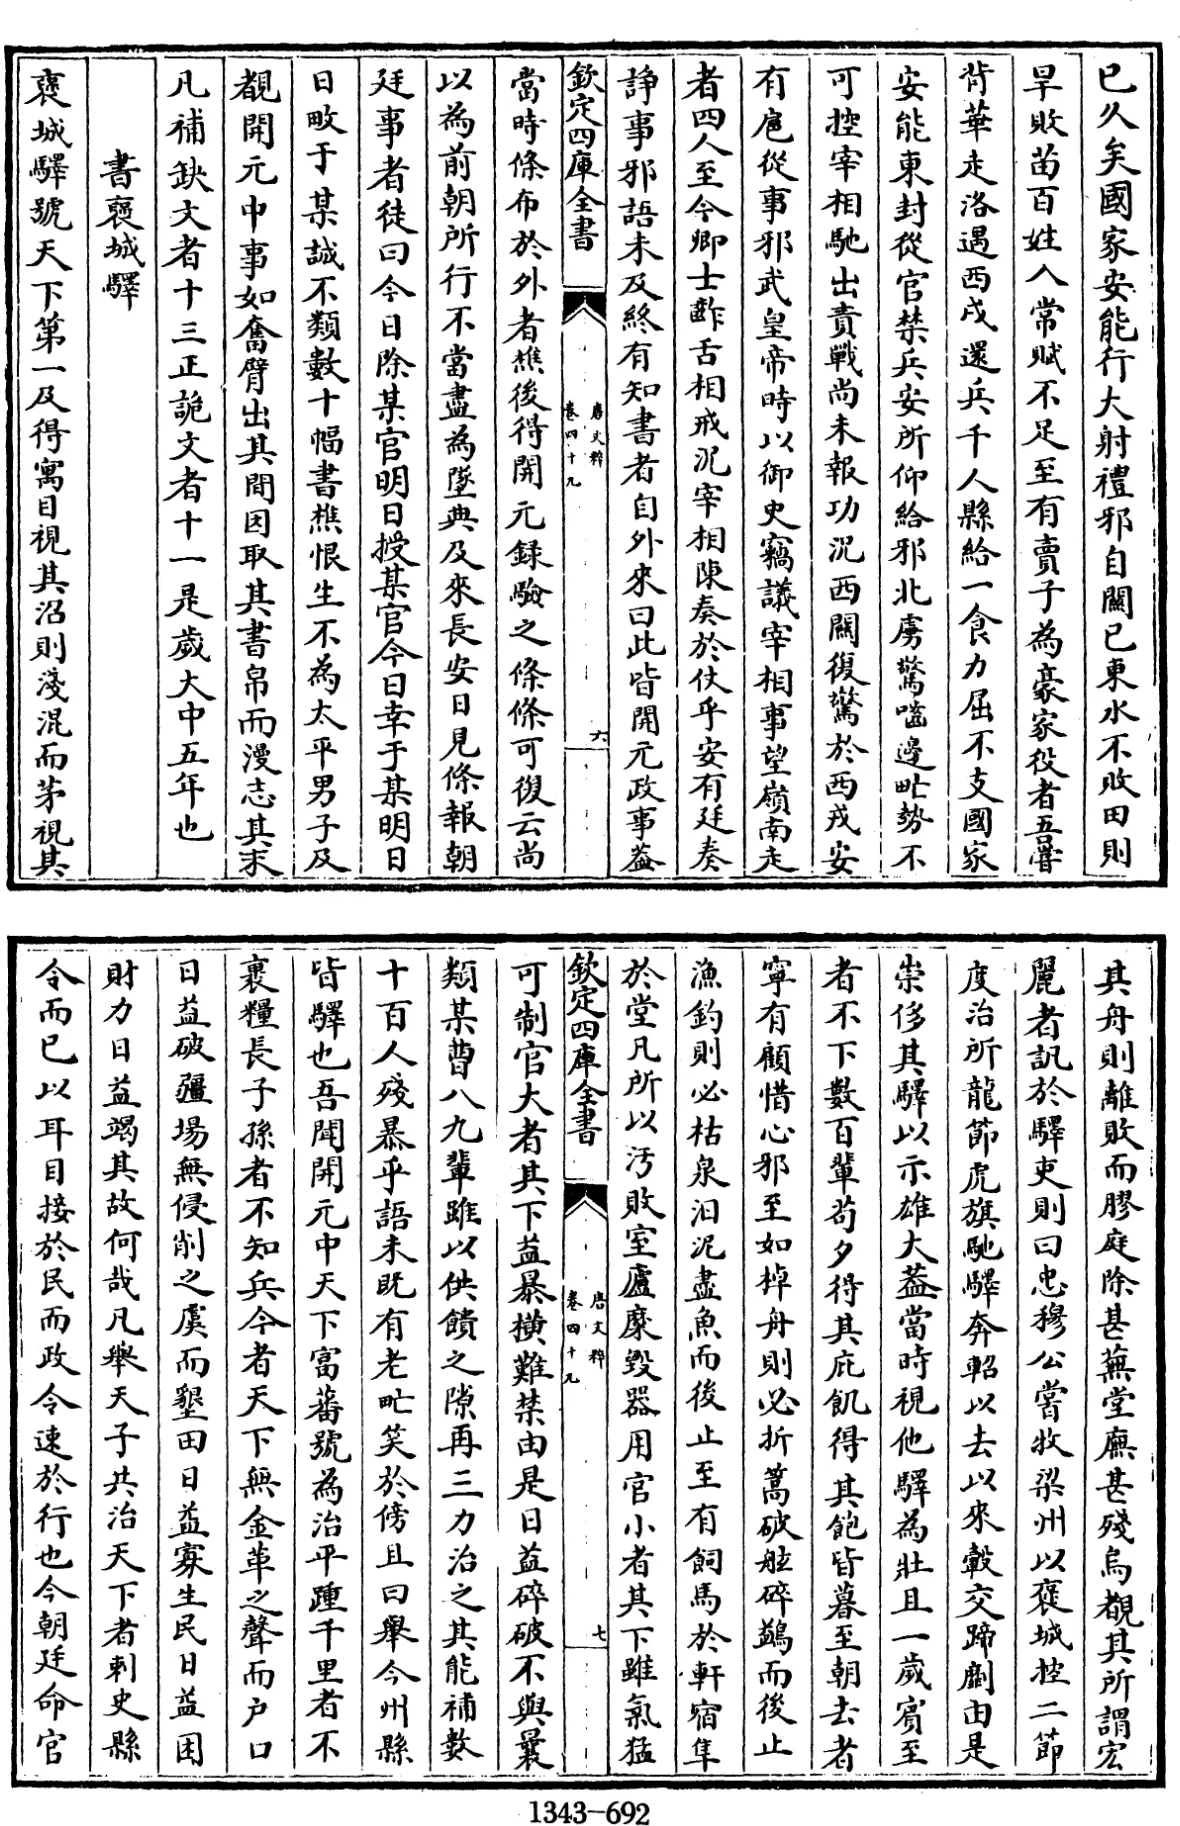 已久矣國家安能行大射禮邪自關已東水不敗田則
旱敗苗百姓入常賦不足至有賣子為豪家役者吾嘗
背華走洛遇西戍還兵千人縣給一食力屈不支國家
安能東封從官禁兵安所仰給邪北虜驚嚙邊甿勢不
可控宰相馳出責戰尚未報功況西關復驚於西戎安
有扈從事邪武皇帝時以御史竊議宰相事望嶺南走
者四人至今卿士齰舌相戒況宰相陳奏於仗乎安有廷奏
諍事邪語未及終有知書者自外來曰此皆開元政事葢
欽定四庫全書
唐文粹
卷四十九
六
當時條布於外者樵後得開元錄驗之條條可復云尚
以為前朝所行不當盡為墜典及來長安日見條報朝
廷事者徒曰今日除某官明日授某官今日幸于某明日
日畋于某誠不類數十幅書樵恨生不為太平男子及
覩開元中事如奮臂出其間因取其書帛而漫志其末
凡補缺文者十三正訛文者十一是歲大中五年也
書襃城驛
襃城驛號天下第一及得寓目視其沼則淺混而茅視其
其舟則離敗而膠庭除甚蕪堂廡甚殘烏覩其所謂宏
麗者訊於驛吏則曰忠穆公嘗牧梁州以襃城控二節
度治所龍節虎旗馳驛奔軺以去以來轂交蹄劘由是
崇侈其驛以示雄大葢當時視他驛為壯且一歲賓至
者不下數百輩苟夕得其庇飢得其飽皆暮至朝去者
寧有顧惜心邪至如棹舟則必折篙破舷碎鷁而後止
漁釣則必枯泉汩泥盡魚而後止至有飼馬於軒宿隼
於堂凡所以汚敗室廬糜毀器用官小者其下雖氣猛
欽定四庫全書
唐文粹
卷四十九
七
可制官大者其下益暴橫難禁由是日益碎破不與曩
類某曹八九輩雖以供饋之隙再三力治之其能補數
十百人殘暴乎語未既有老甿笑於傍且曰舉今州縣
皆驛也吾聞開元中天下富蕃號為治平踵千里者不
裹糧長子孫者不知兵今者天下無金革之聲而户口
日益破疆場無侵削之虞而墾田日益寡生民日益困
財力日益竭其故何哉凡舉天子共治天下者刺史縣
令而已以耳目接於民而政令速於行也今朝廷命官
1343-692